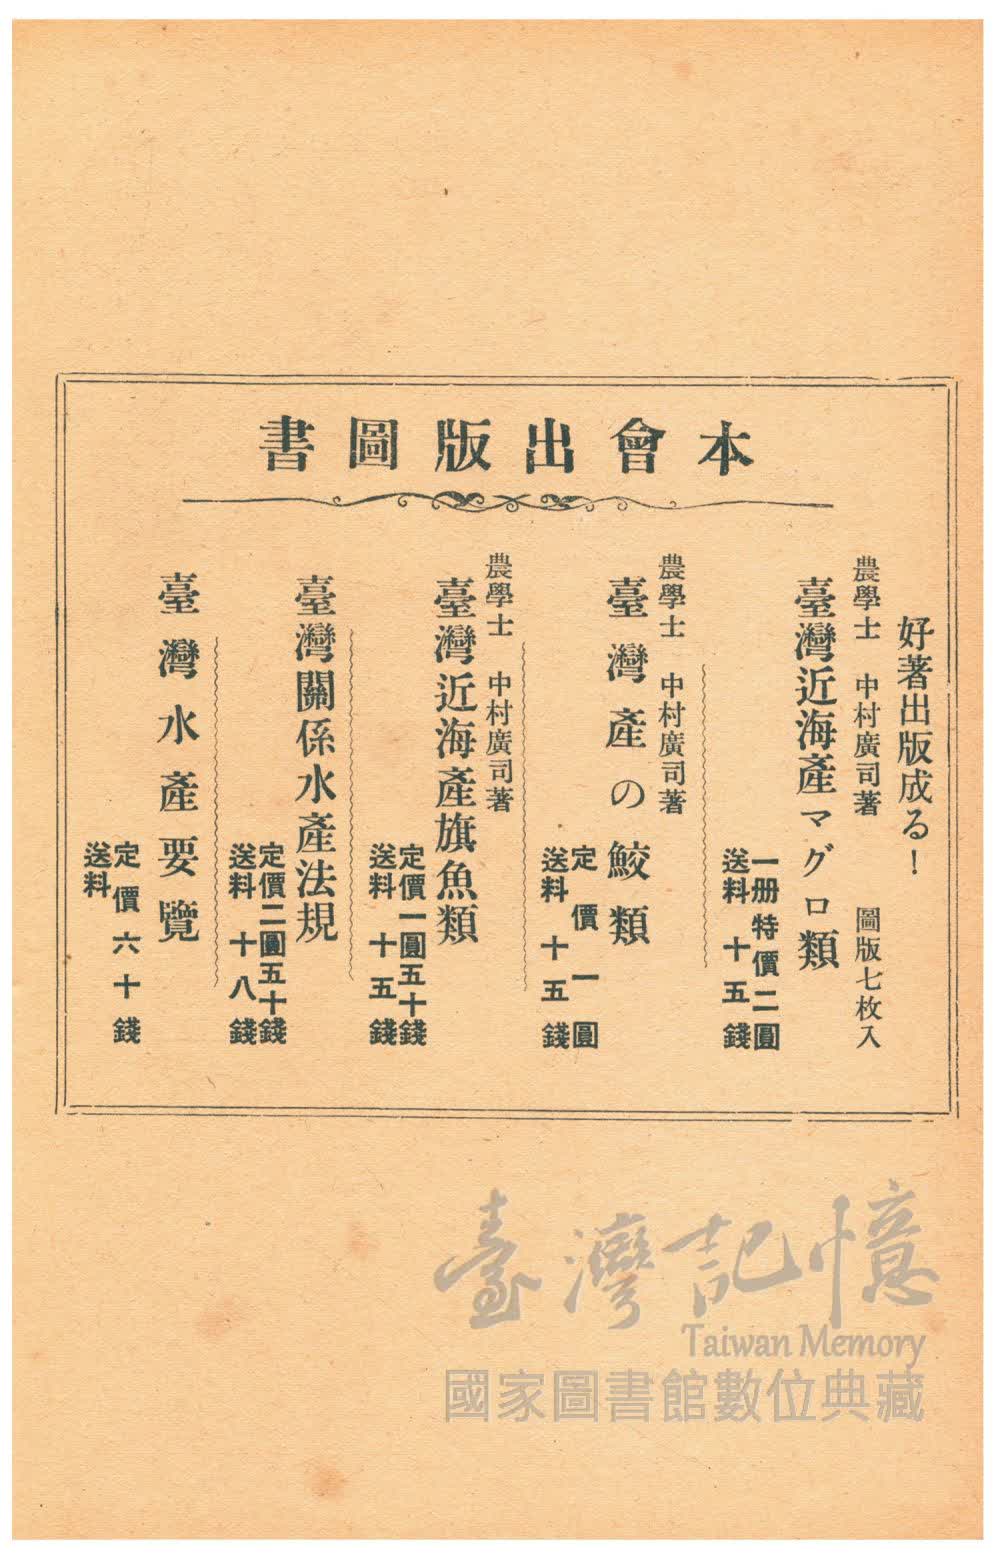 本會出版圖書
好著出版成る！
農學士　中村廣司著　圖版七枚入
臺灣近海產マグロ類
一册特價二圓
送料十五錢
農學士　中村廣司著
臺灣產の鮫類
定價一圓
送料十五錢
農學士　中村廣司著
臺灣近海產旗魚類
定價一圓五十錢
送料十五錢
臺灣關係水產法規
定價二圓五十錢
送料十八錢
臺灣水產要覽
定價六十錢
送料
臺灣記憶
Taiwan Memory
國家圖書館數位典藏